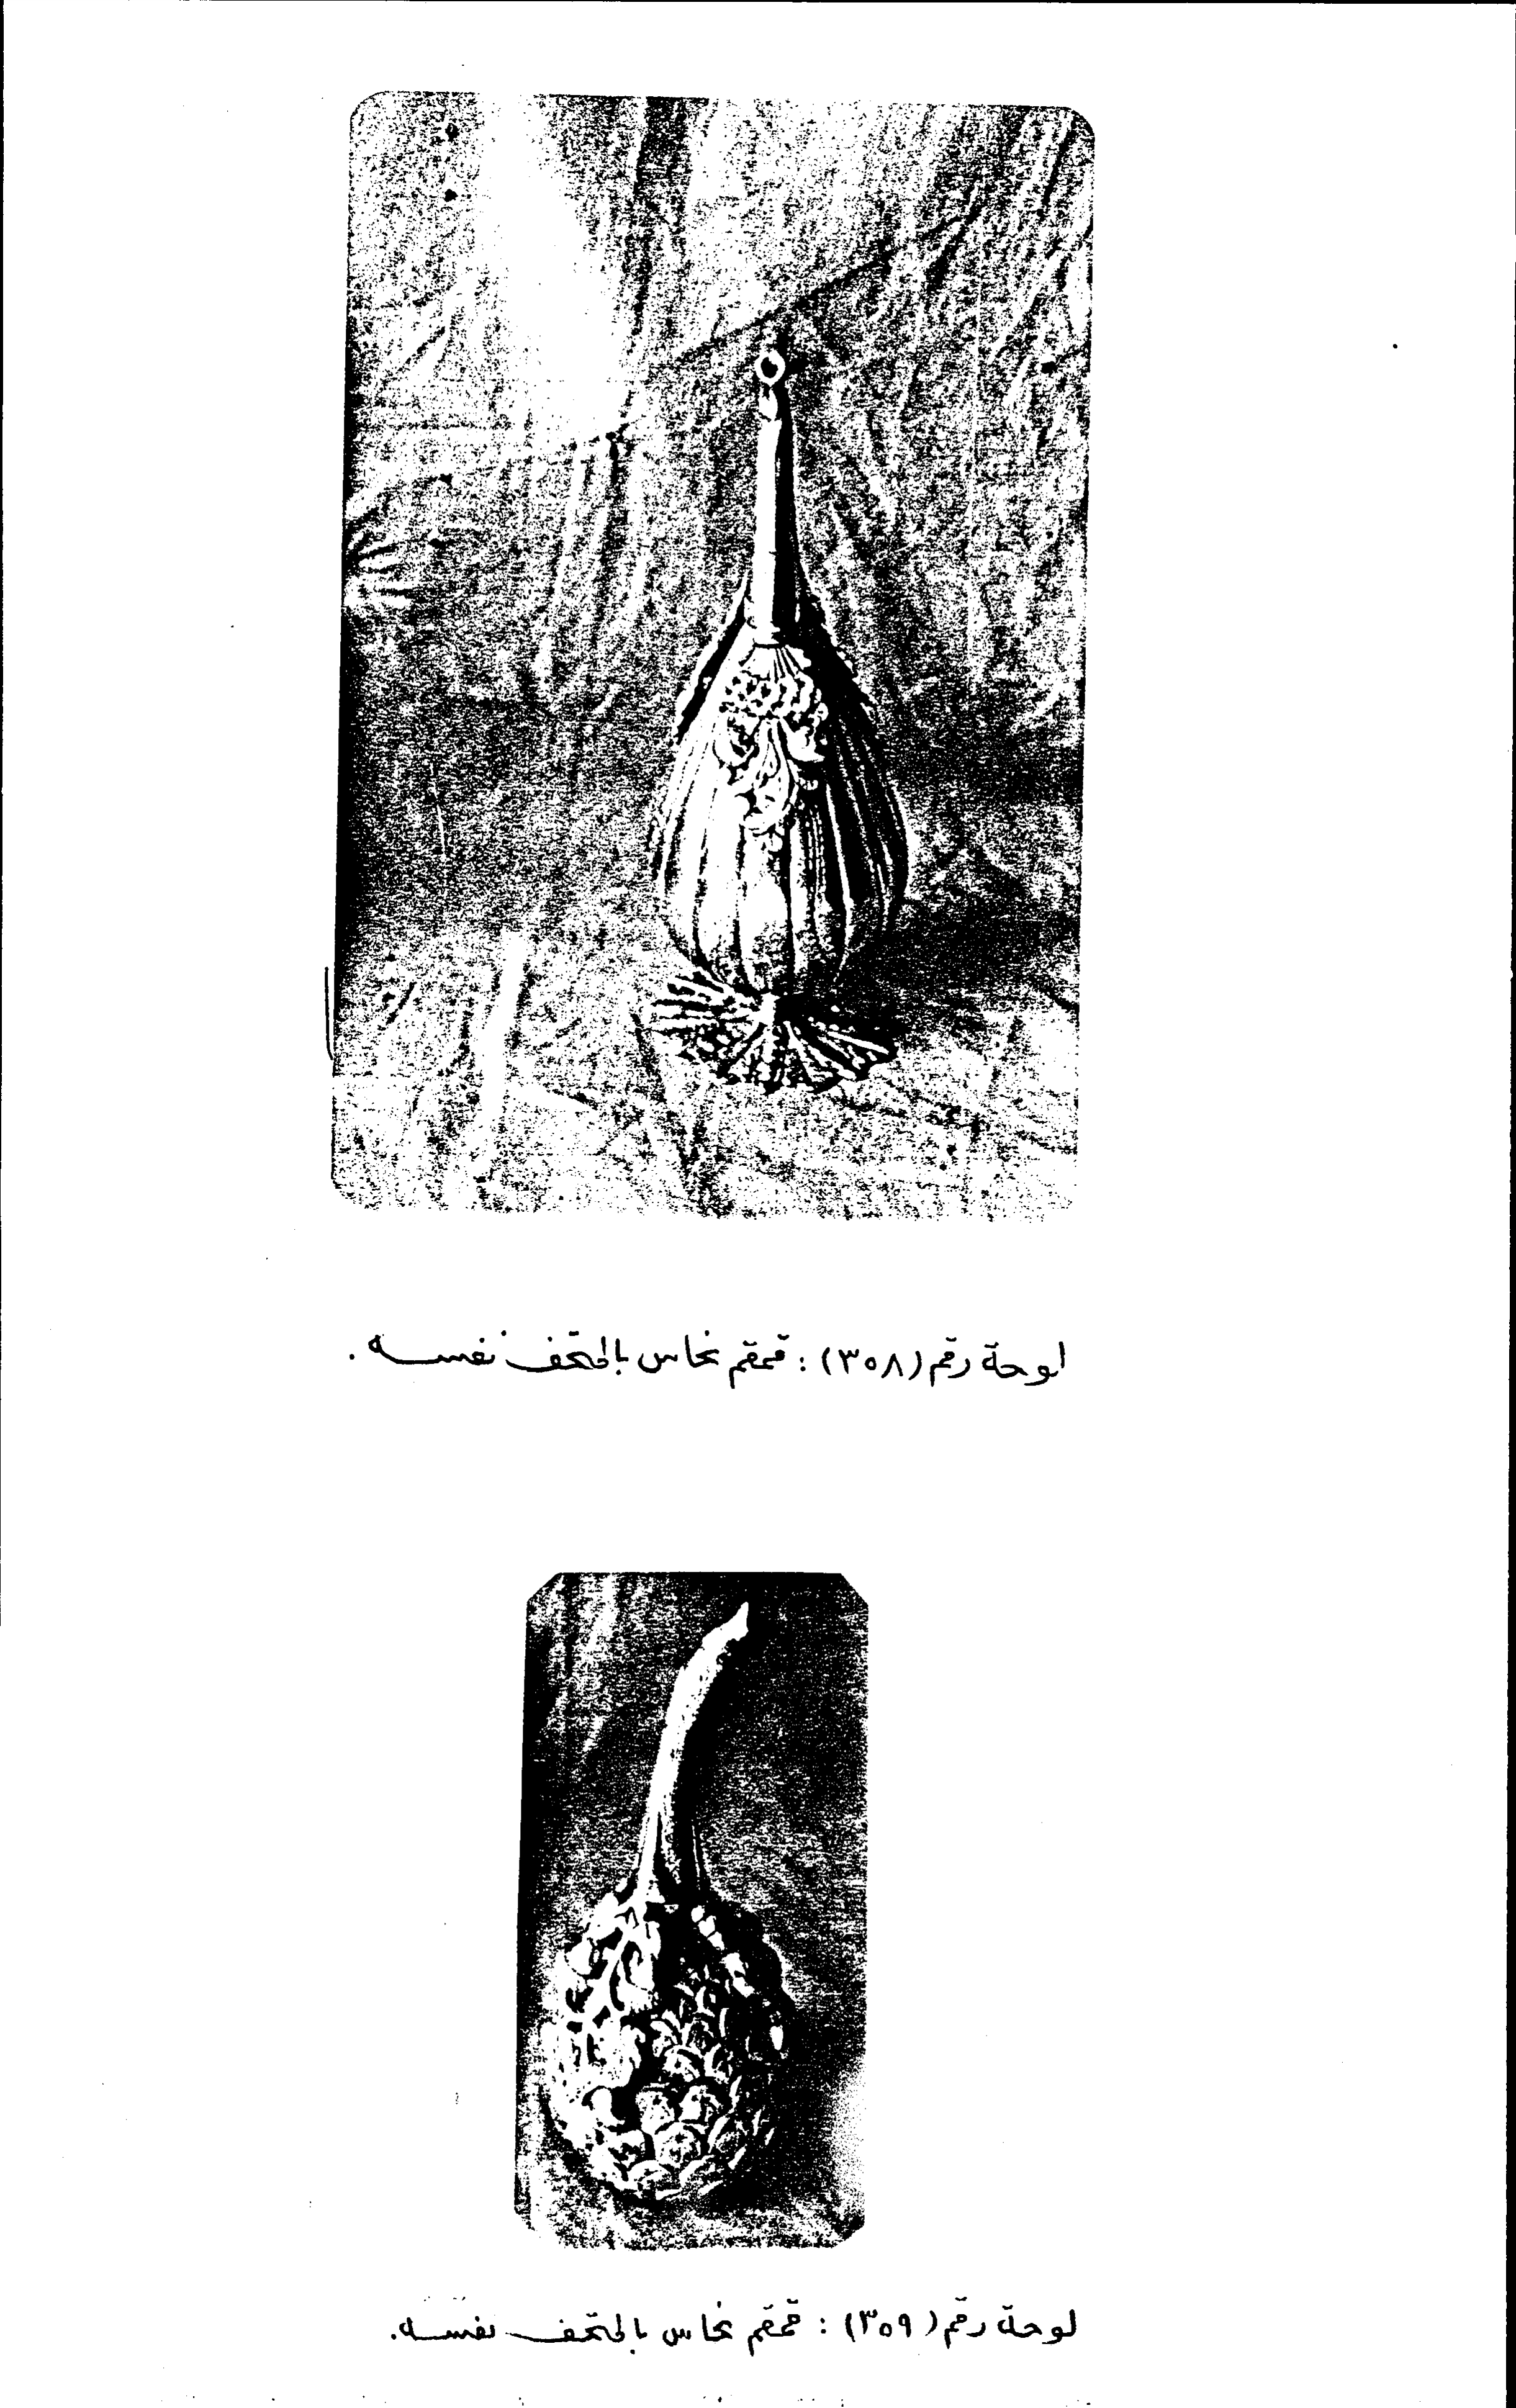 لوحة رقم (٣٥٨) : قمقم نحاس بالمتحف نفسه .
لوحة رقم (٣٥٩) : قمقم نحاس بالمتحف نفسه .